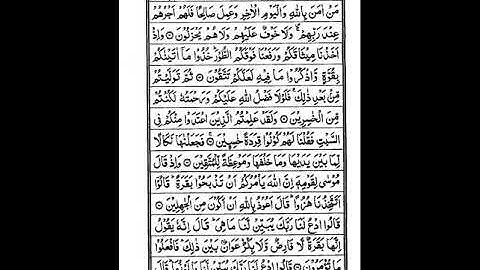 مَنْ اٰمَنَ بِاللّٰهِ وَالْيَوْمِ الْاٰخِرِ وَعَمِلَ صَالِحًا فَلَهُمْ اَجْرُهُمْ
عِنْدَ رَبِّهِمْ ۚ وَلَا خَوْفٌ عَلَيْهِمْ وَلَا هُمْ يَحْزَنُوْنَ ۝ وَاِذْ
اَخَذْنَا مِيْثَاقَكُمْ وَرَفَعْنَا فَوْقَكُمُ الطُّوْرَ ؕ خُذُوْا مَاۤ اٰتَيْنٰكُمْ
بِقُوَّةٍ وَّاذْكُرُوْا مَا فِيْهِ لَعَلَّكُمْ تَتَّقُوْنَ ۝ ثُمَّ تَوَلَّيْتُمْ
مِّنْۢ بَعْدِ ذٰلِكَ ۚ فَلَوْلَا فَضْلُ اللّٰهِ عَلَيْكُمْ وَرَحْمَتُهٗ لَكُنْتُمْ
مِّنَ الْخٰسِرِيْنَ ۝ وَلَقَدْ عَلِمْتُمُ الَّذِيْنَ اعْتَدَوْا مِنْكُمْ فِى
السَّبْتِ فَقُلْنَا لَهُمْ كُوْنُوْا قِرَدَةً خٰسِـِٕيْنَ ۝ فَجَعَلْنٰهَا نَكَالًا
لِّمَا بَيْنَ يَدَيْهَا وَمَا خَلْفَهَا وَمَوْعِظَةً لِّلْمُتَّقِيْنَ ۝ وَاِذْ قَالَ
مُوْسٰى لِقَوْمِهٖۤ اِنَّ اللّٰهَ يَاْمُرُكُمْ اَنْ تَذْبَحُوْا بَقَرَةً ؕ قَالُوْۤا
اَتَتَّخِذُنَا هُزُوًا ؕ قَالَ اَعُوْذُ بِاللّٰهِ اَنْ اَكُوْنَ مِنَ الْجٰهِلِيْنَ ۝
قَالُوا ادْعُ لَنَا رَبَّكَ يُبَيِّنْ لَّنَا مَا هِىَ ؕ قَالَ اِنَّهٗ يَقُوْلُ
اِنَّهَا بَقَرَةٌ لَّا فَارِضٌ وَّلَا بِكْرٌ ؕ عَوَانٌۢ بَيْنَ ذٰلِكَ ؕ فَافْعَلُوْا
مَا تُؤْمَرُوْنَ ۝ قَالُوا ادْعُ لَنَا رَبَّكَ يُبَيِّنْ لَّنَا مَا لَوْنُهَا ؕ قَالَ